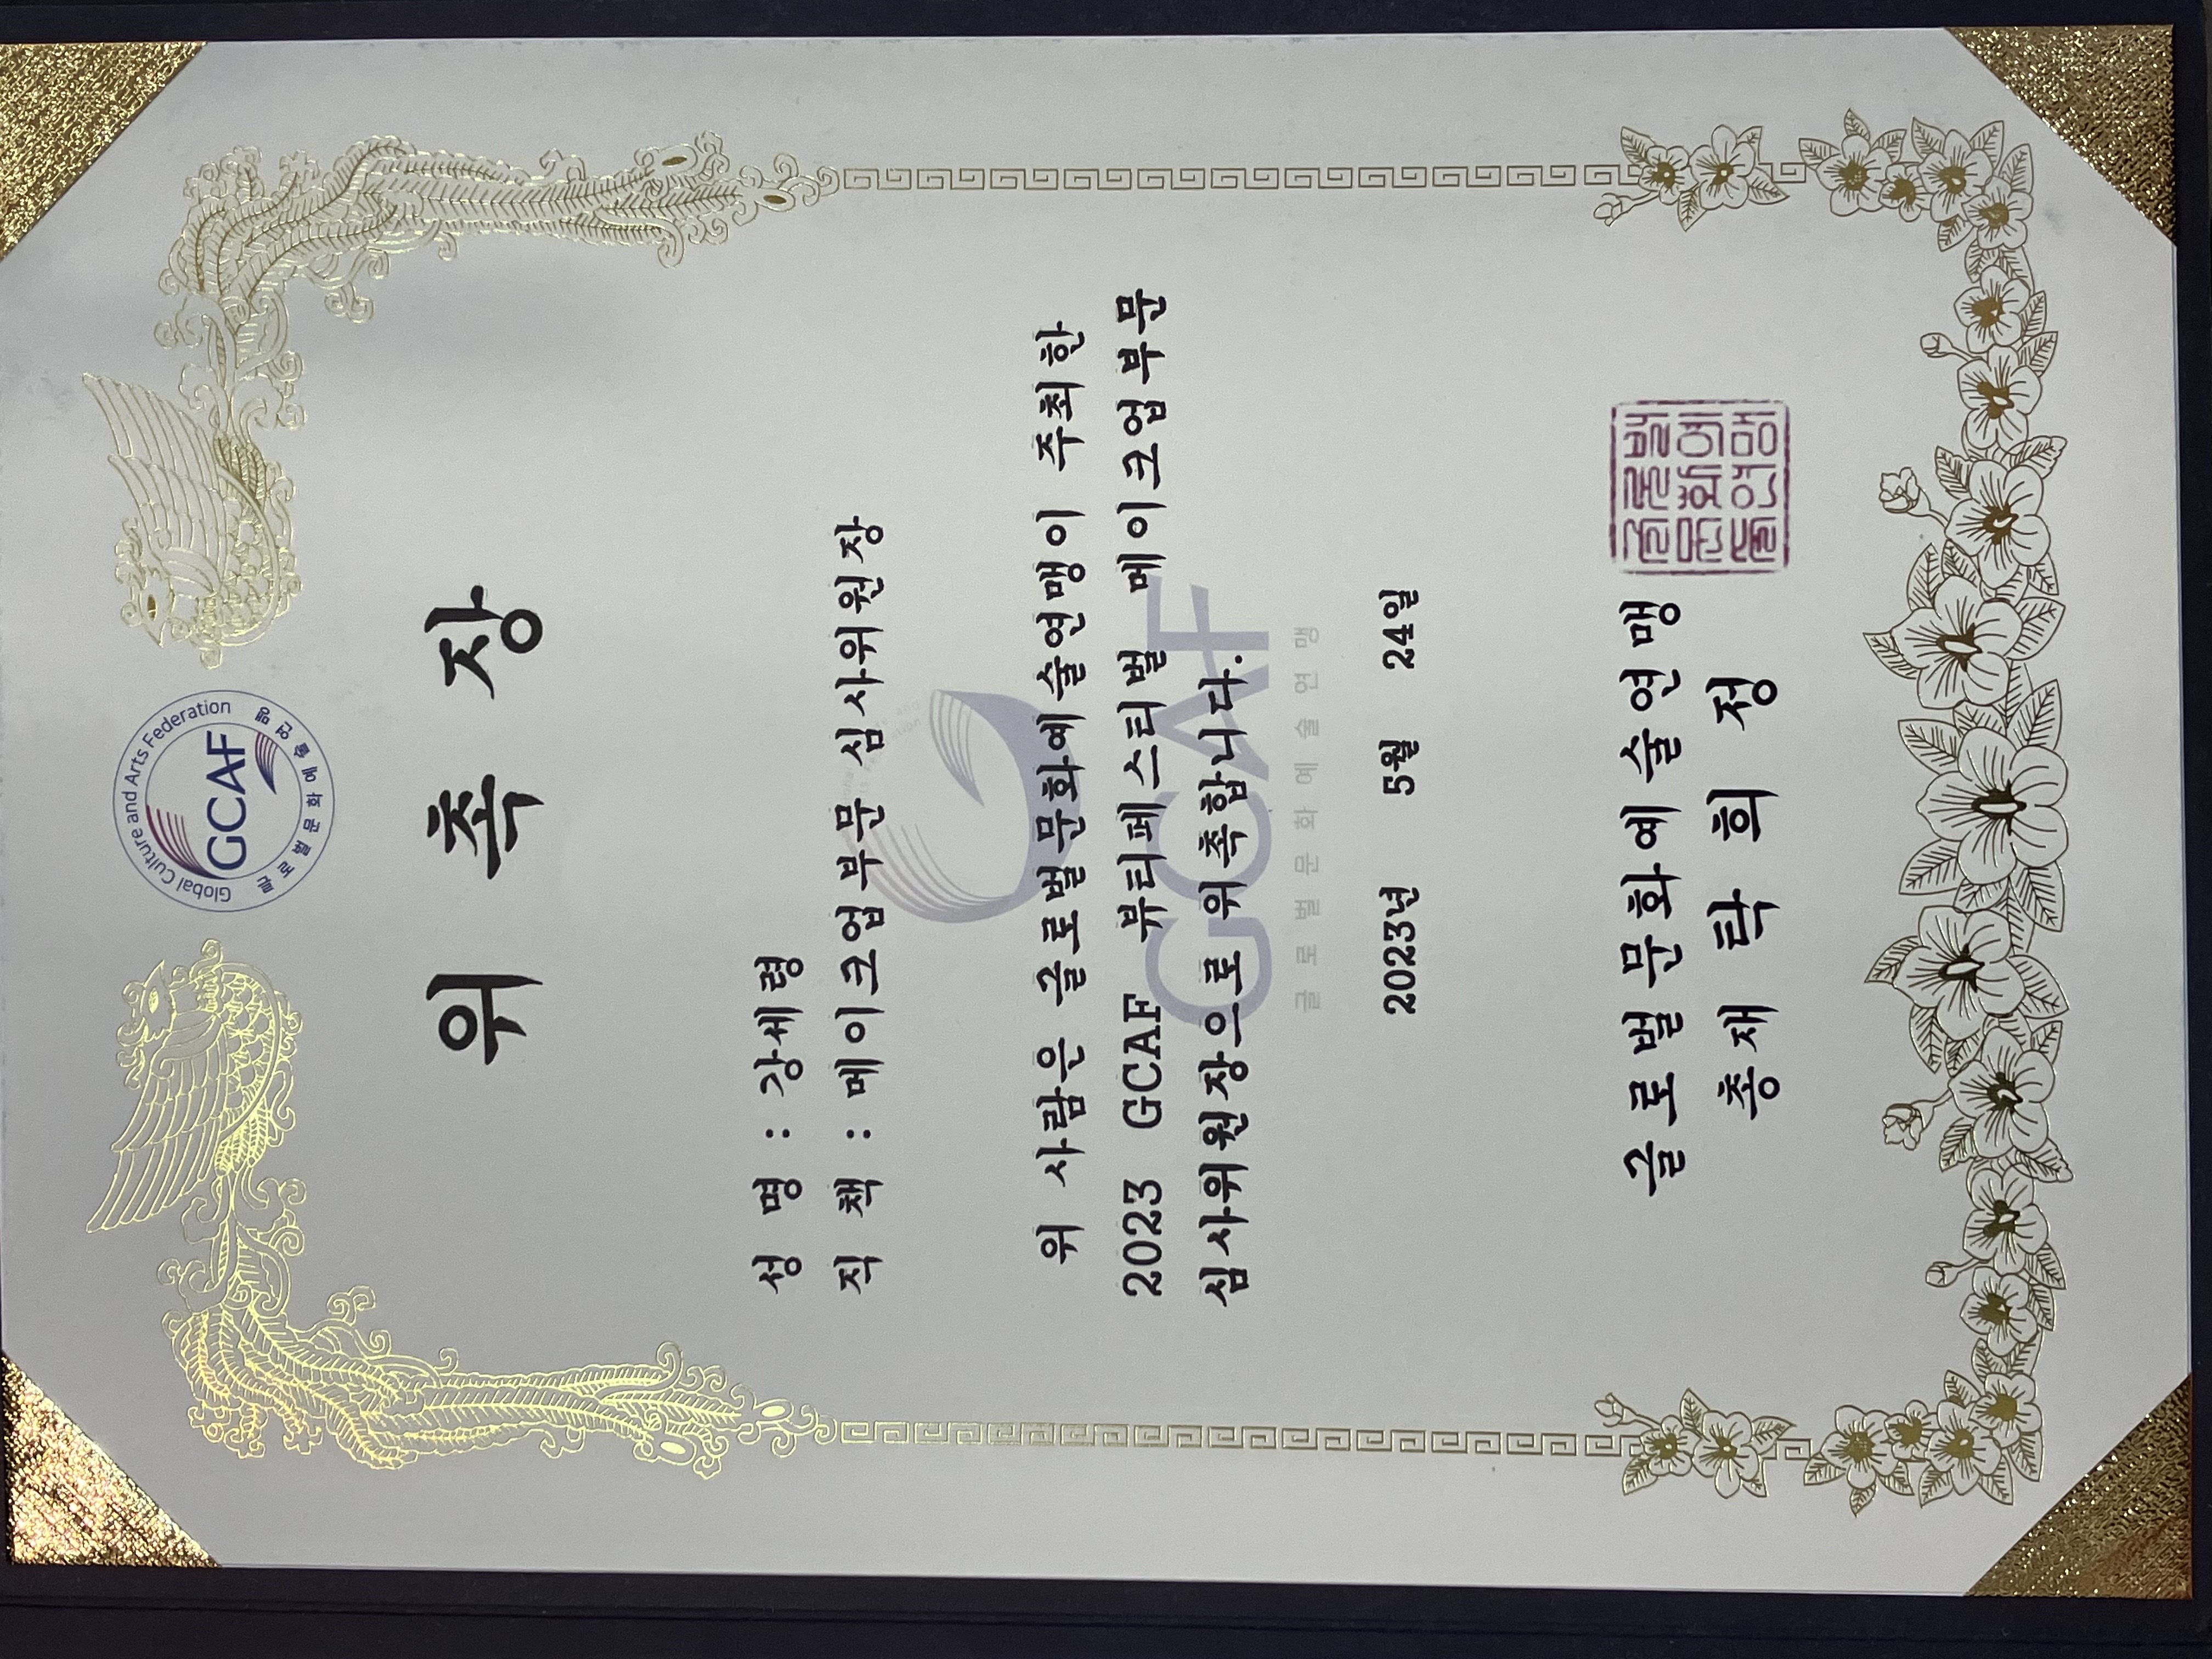 Global Culture and Arts Federation
GCAF
글로벌문화예술연맹
위 촉 장
성 명 : 강세령
직 책 : 메이크업부문 심사위원장
위 사람은 글로벌문화예술연맹이 주최한
2023 GCAF 뷰티페스티벌 메이크업부문
심사위원장으로 위촉합니다.
GCAF
글로벌문화예술연맹
2023년 5월 24일
글로벌문화예술연맹
총재 탁희정
글로벌
문화예
술연맹